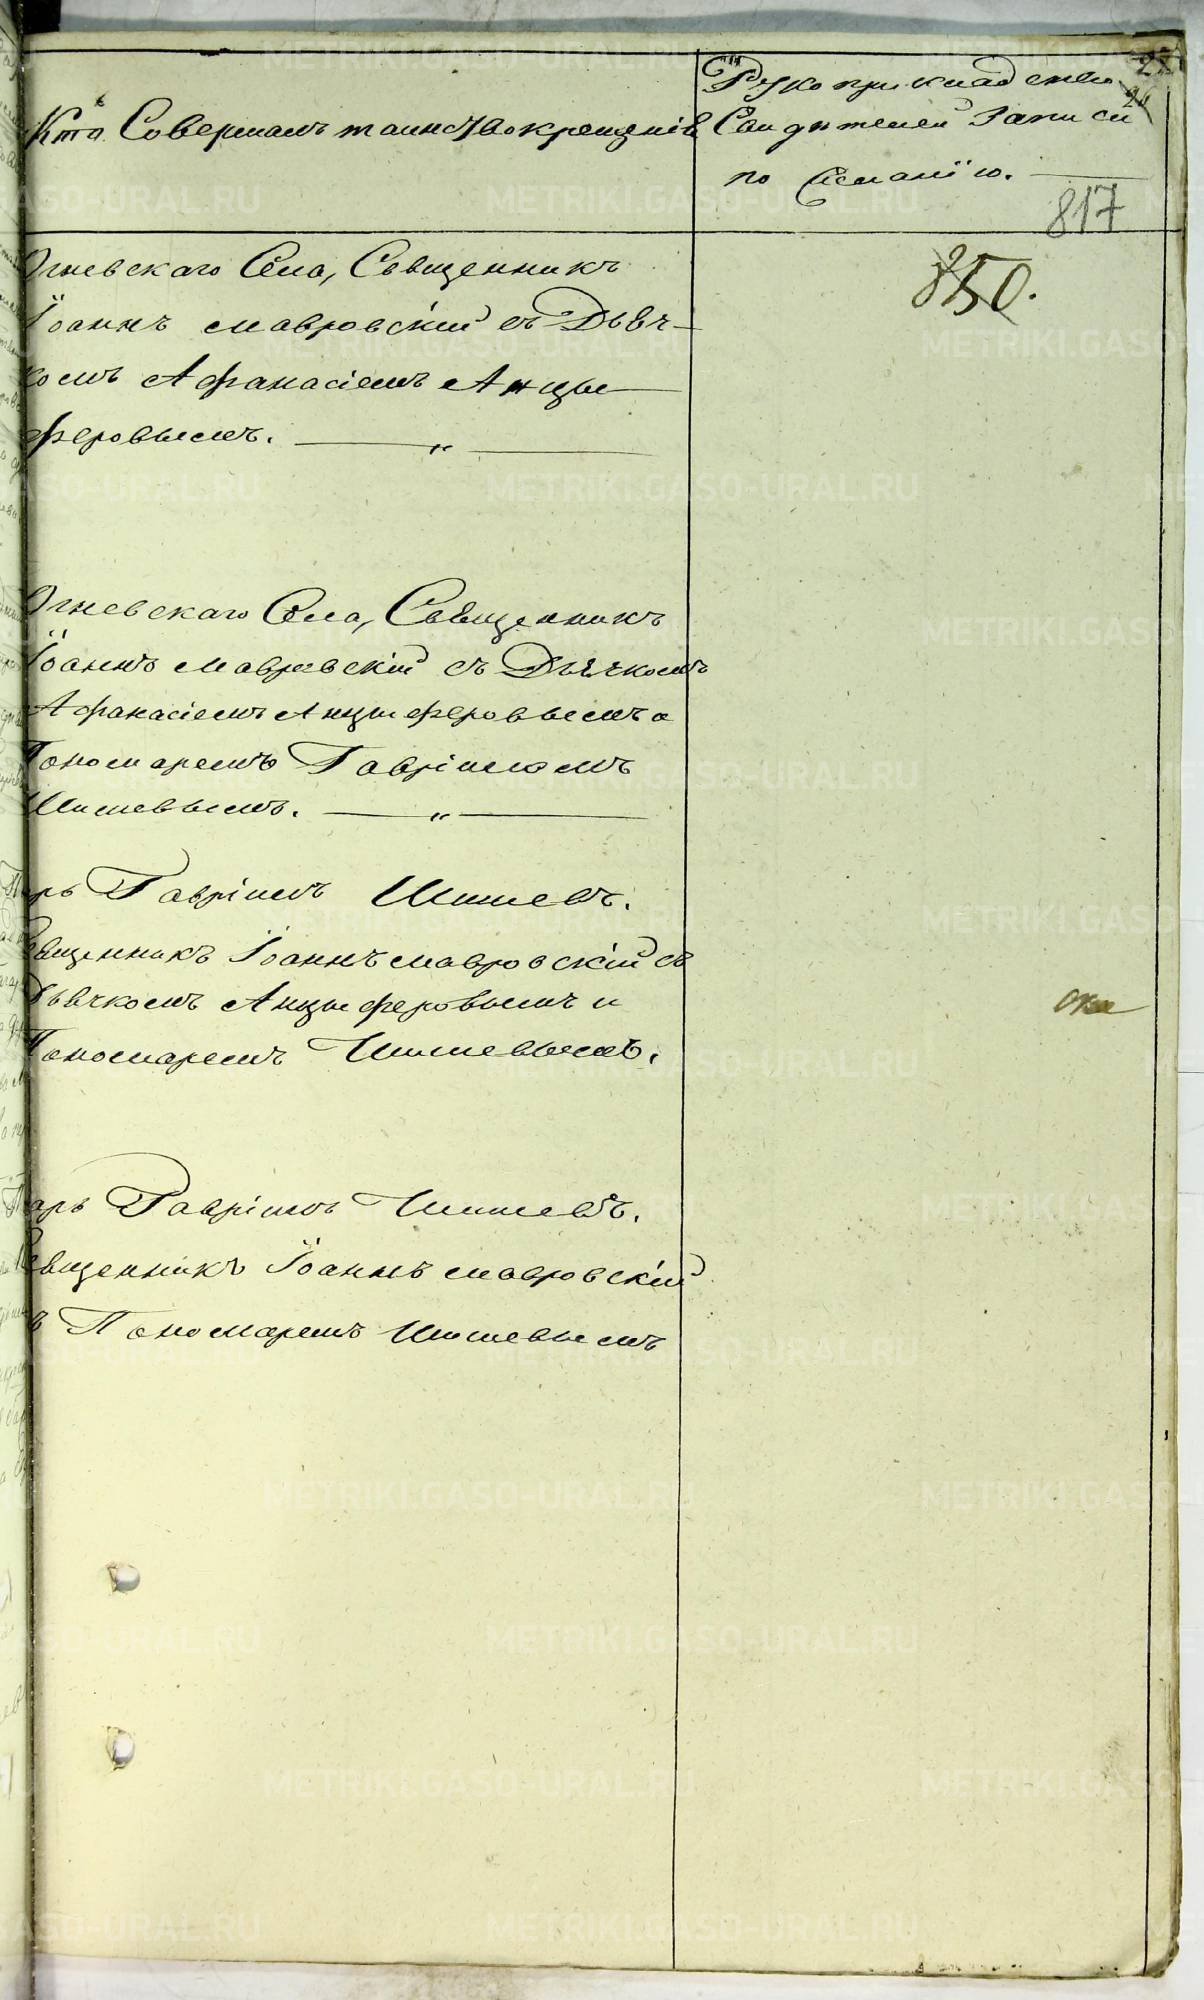 Кто Совершалъ таинство крещенія
Рукоприкладство
Свидѣтелей Записи
по желанію.
817
850.
Огневскаго Села, Священникъ
Іоаннъ Мавровскій съ Дьяч-
комъ Афанасіемъ Анцы
феровымъ.
Огневскаго Села, Священникъ
Іоаннъ Мавровскій съ Дьячкомъ
Афанасіемъ Анцыферовымъ и
Пономаремъ Гавріиломъ
Шишевымъ.
Гавріилъ Шишевъ.
Священникъ Іоаннъ Мавровскій съ
Дьячкомъ Анцыферовымъ и
Пономаремъ Шишевымъ.
Гавріилъ Шишевъ.
Священникъ Іоаннъ Мавровскій
съ Пономаремъ Шишевымъ
METRIKI.GASO-URAL.RU